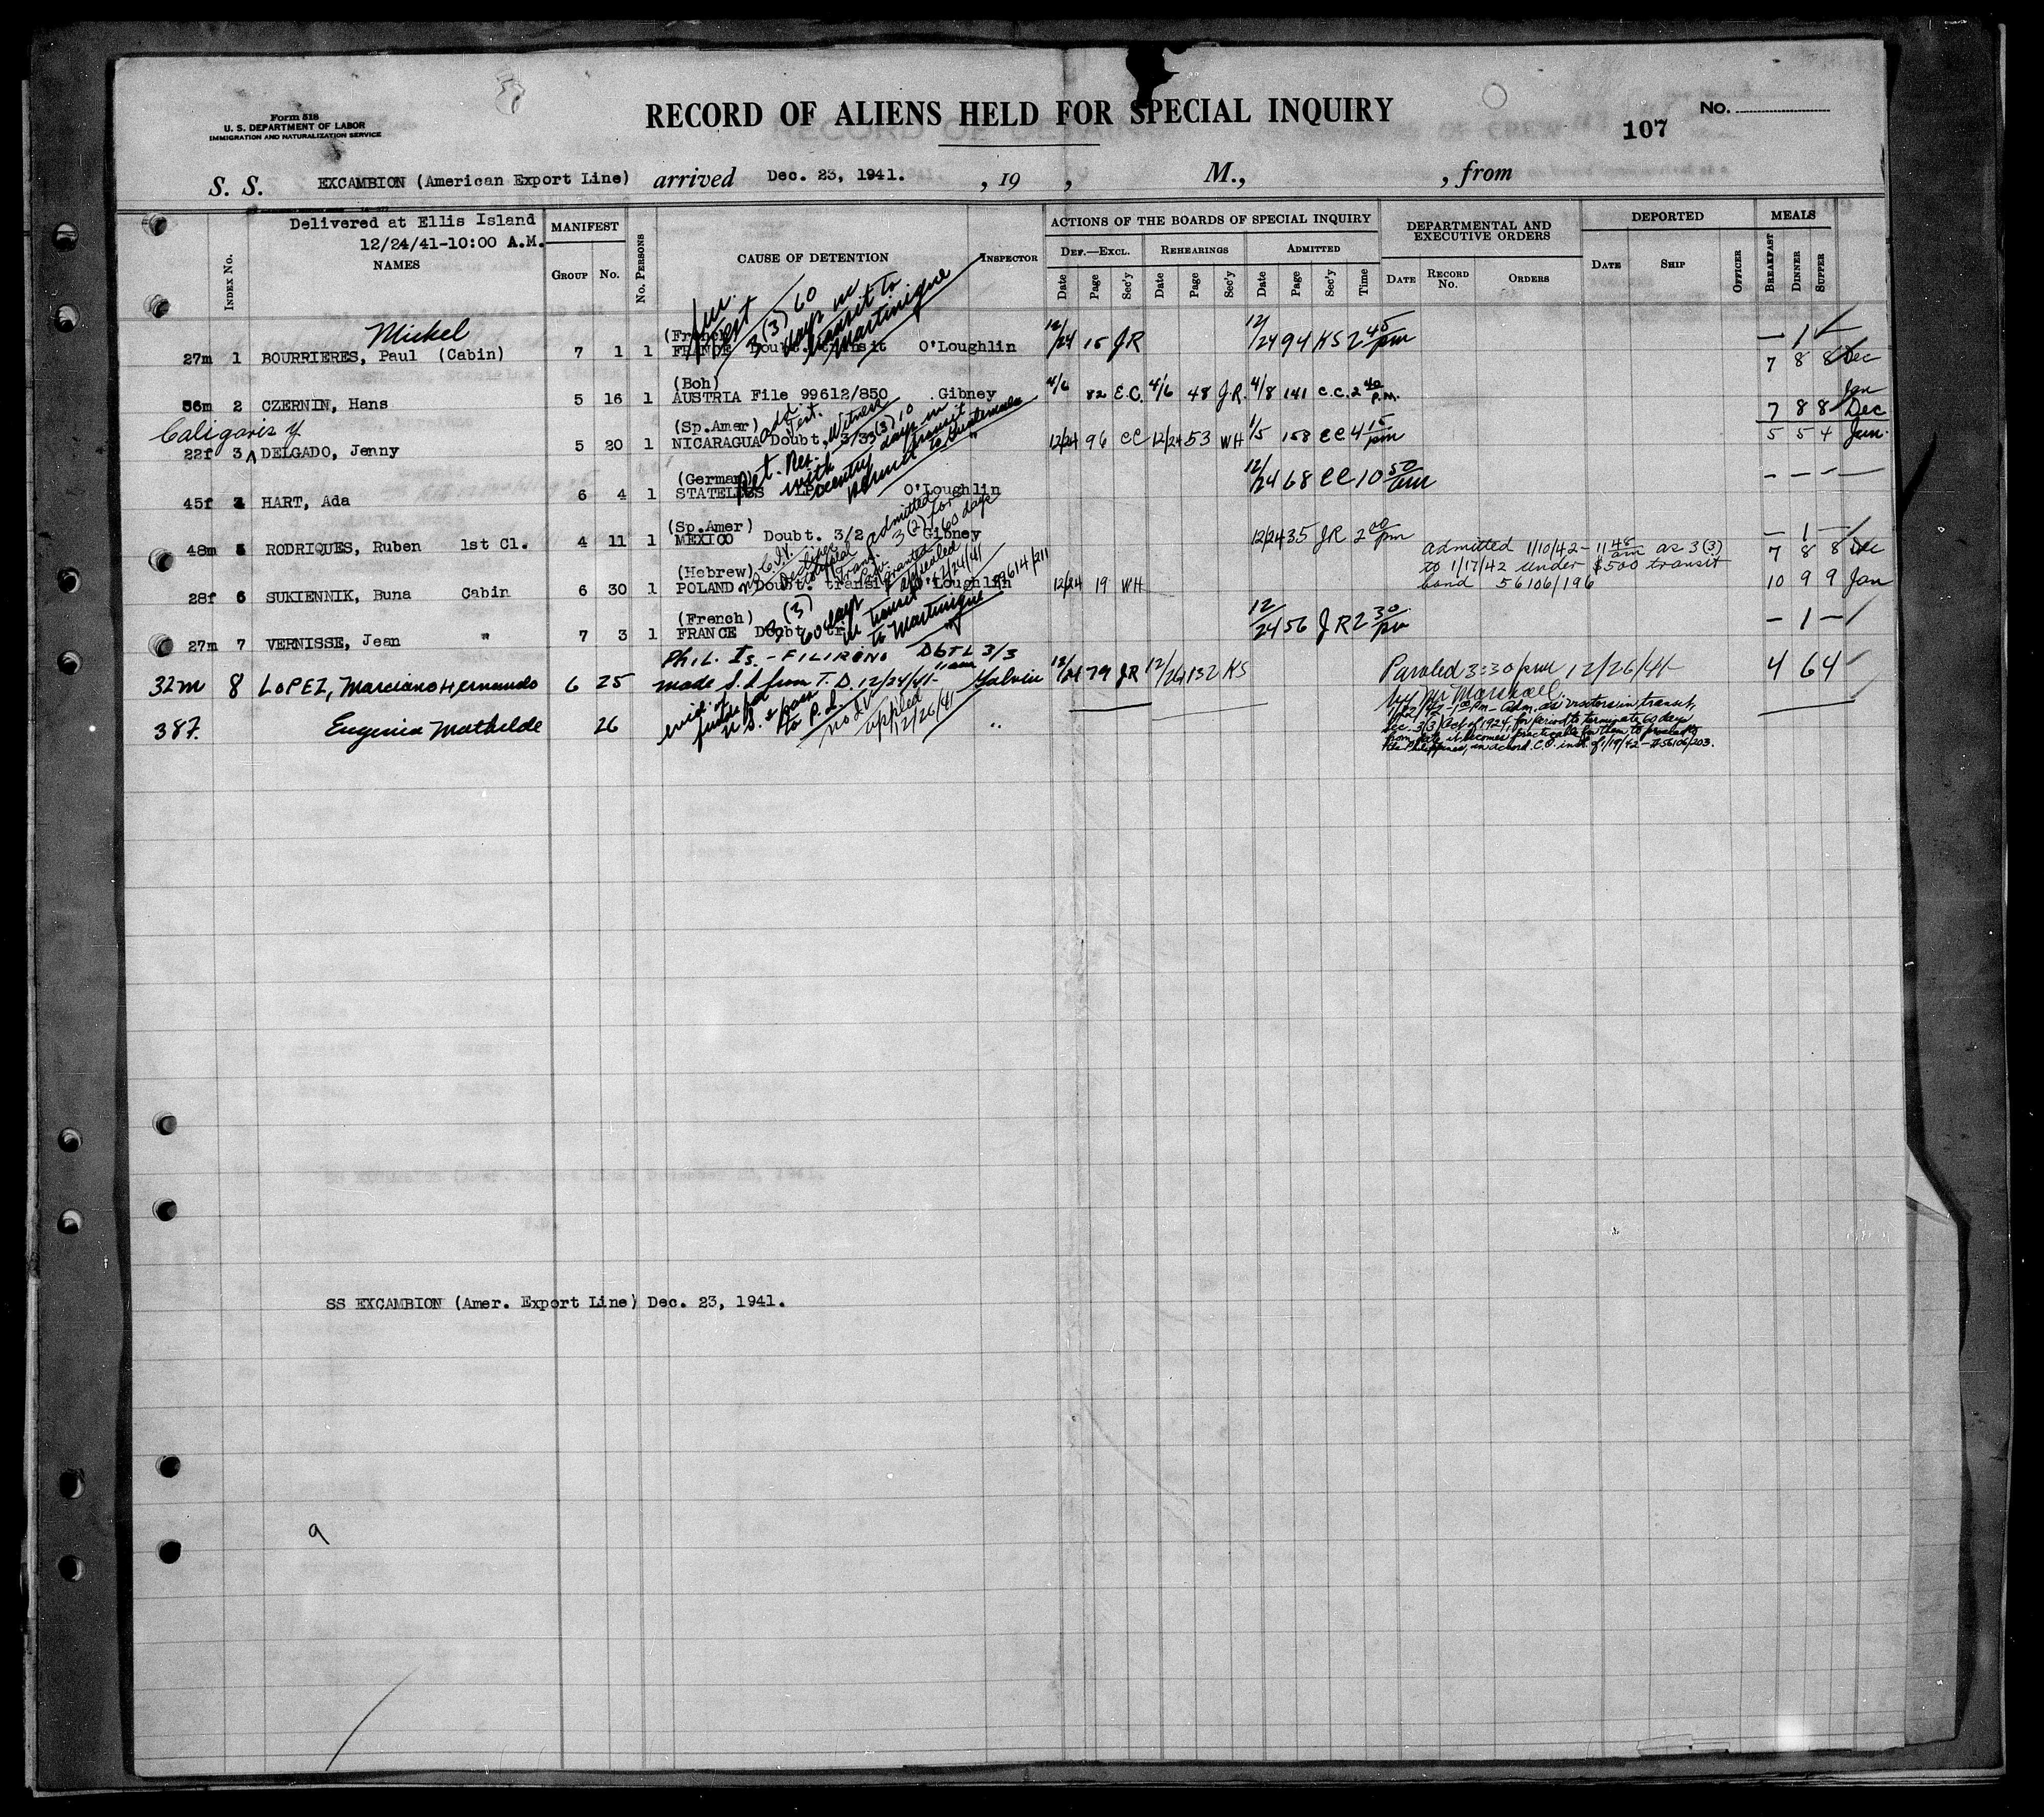 Form 518
U. S. DEPARTMENT OF LABOR
IMMIGRATION AND NATURALIZATION SERVICE
RECORD OF ALIENS HELD FOR SPECIAL INQUIRY
No.
107
S. S. EXCAMBION (American Export Line) arrived Dec. 23, 1941. , 19 , M., , from
Delivered at Ellis Island
12/24/41-10:00 A.M.
INDEX No. NAMES MANIFEST GROUP No. No. PERSONS CAUSE OF DETENTION INSPECTOR
ACTIONS OF THE BOARDS OF SPECIAL INQUIRY
DEF.—EXCL. REHEARINGS ADMITTED
Date Page Sec'y Date Page Sec'y Date Page Sec'y Time
DEPARTMENTAL AND EXECUTIVE ORDERS
DATE RECORD No. ORDERS
DEPORTED
DATE SHIP OFFICER
MEALS
BREAKFAST DINNER SUPPER
3(3) 60 days in transit to Martinique
Mickel (French)
27m 1 BOURRIERES, Paul (Cabin) 7 1 1 FRANCE Doubt. transit O'Loughlin 12/24 15 JR 12/24 94 KS 2 45 pm — 1 —
7 8 8 Dec
(Boh)
36m 2 CZERNIN, Hans 5 16 1 AUSTRIA File 99612/850 Gibney 4/6 82 E.C. 4/6 48 J.R. 4/8 141 C.C. 2 40 P.M. Jan
7 8 8 Dec
Caligaris y (Sp.Amer)
22f 3 DELGADO, Jenny 5 20 1 NICARAGUA Doubt. 3/3 12/24 96 CC 12/24 53 WH 1/5 158 CC 4 15 pm 5 5 4 Jan.
3(3) 10 days in transit to Guatemala
(German)
45f 4 HART, Ada 6 4 1 STATELESS LPC O'Loughlin 12/24 68 CC 10 50 am — — —
(Sp.Amer)
48m 5 RODRIQUES, Ruben 1st Cl. 4 11 1 MEXICO Doubt. 3/2 Gibney 12/24 35 JR 2 00 pm — 1 —
admitted 3(2) for 60 days
admitted 1/10/42 - 11 48 am as 3(3) 7 8 8 Dec
to 1/17/42 under $500 transit
bond 56106/196
(Hebrew)
28f 6 SUKIENNIK, Buna Cabin 6 30 1 POLAND Doubt. transit O'Loughlin 12/24 19 WH 10 9 9 Jan
appealed 12/24/41
99614/211
(French)
27m 7 VERNISSE, Jean " 7 3 1 FRANCE Doubt. tr " 12/24 56 JR 2 30 pm — 1 —
3(3) 60 days in transit to Martinique
PHIL. Is. - FILIPINO DbTL 3/3
32m 8 LOPEZ, Marciano Hernando 6 25 made S.I. from T.D. 12/24/41- 11am Galvin 12/24 79 JR 12/26 132 KS Paroled 3:30 pm 12/26/41 4 6 4
to Mr Marshall.
38f. Eugenia Mathilde 26 "
to P.I. no IV appled 12/26/41
1/22/42 - 1 PM - Adm. as visitors in transit,
Sec. 3(3) Act of 1924, for period to terminate 60 days
from date it becomes practicable for them to proceed to
the Philippines, in accord. C.O. instr. of 1/19/42 - # 56106/203.
SS EXCAMBION (Amer. Export Line) Dec. 23, 1941.
9